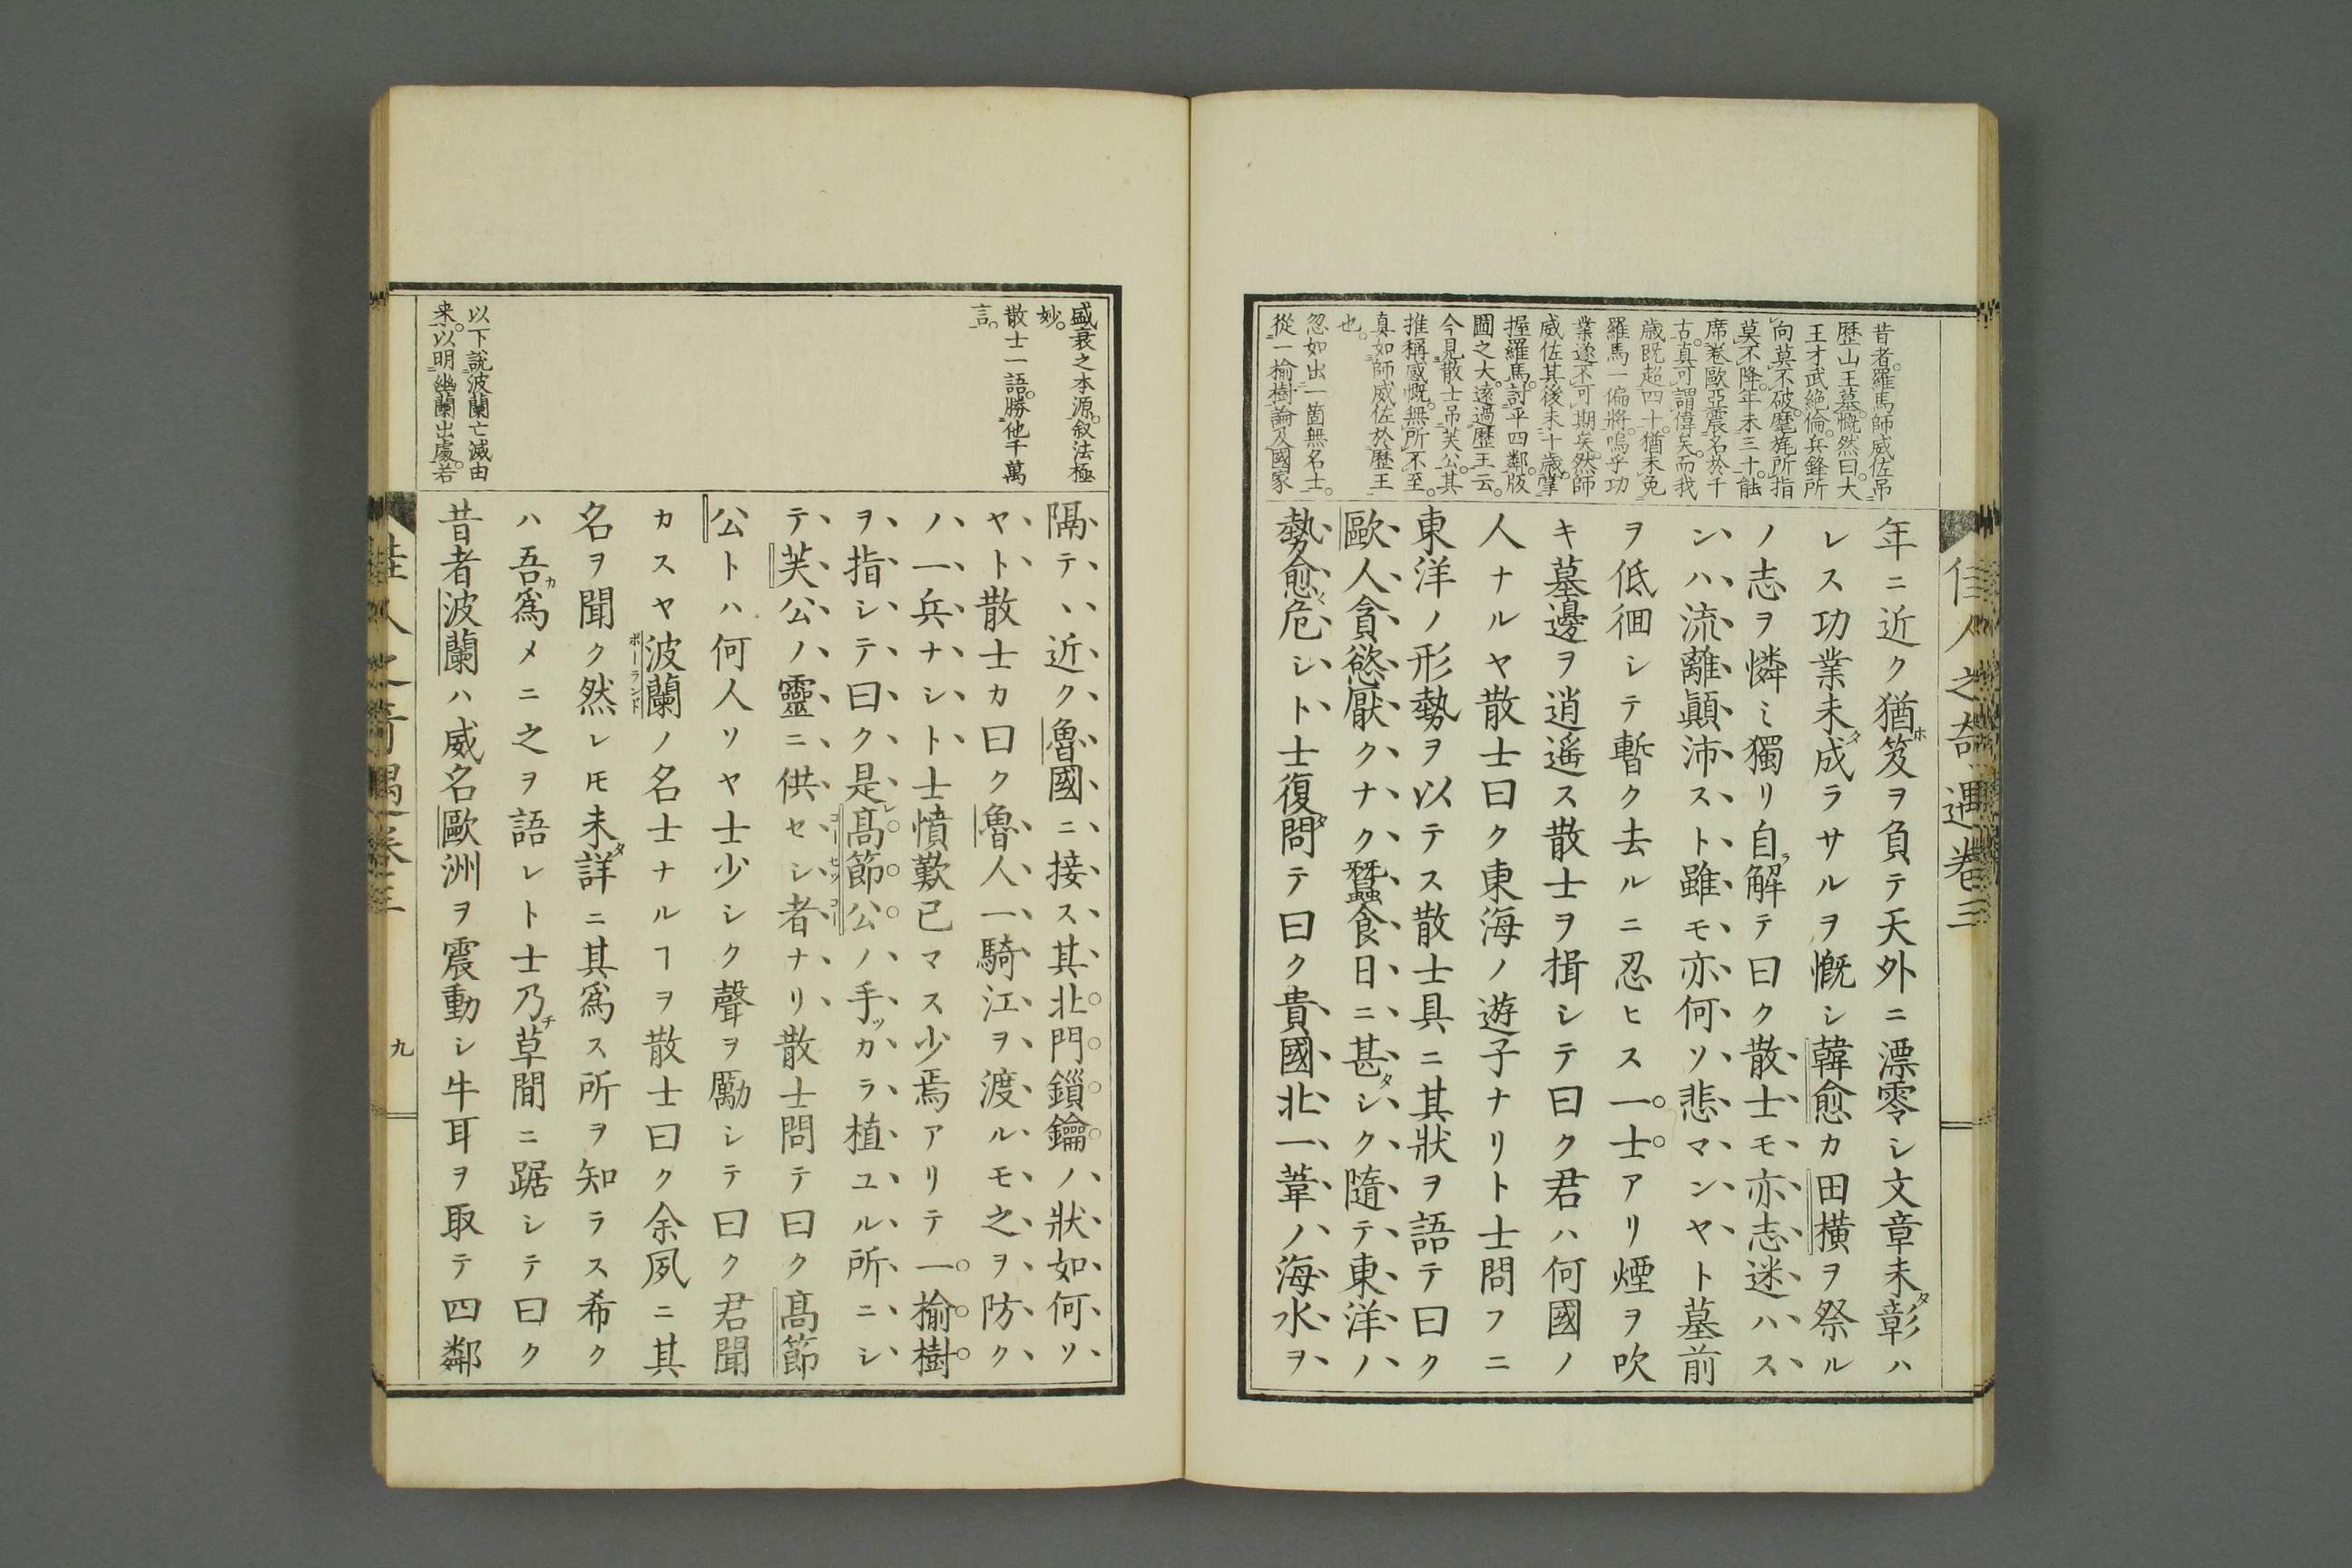 佳人之奇遇卷三
昔者。羅馬師威佐吊
歷山王墓。慨然曰。大
王才武絕倫。兵鋒所
向莫不破。麾旄所指
莫不降。年未三十。能
席卷歐亞。震名於千
古。真可謂偉矣。而我
歲既超四十。猶未免
羅馬一偏將。嗚乎功
業遂不可期矣。然師
威佐其後未十歲。掌
握羅馬。討平四鄰。版
圖之大。遠過歷王云。
今見散士吊芙公。其
推稱感慨。無所不至。
真如師威佐於歷王
也。
忽如出一箇無名士。
從一榆樹論及國家
年ニ近ク猶ホ笈ヲ負テ天外ニ漂零シ文章未タ彰ハ
レス功業未タ成ラサルヲ慨シ韓愈カ田橫ヲ祭ル
ノ志ヲ憐ミ獨リ自ラ解テ曰ク散士モ亦志迷ハス
ンハ流離顚沛スト雖モ亦何ソ悲マンヤト墓前
ヲ低徊シテ暫ク去ルニ忍ヒス一士アリ煙ヲ吹
キ墓邊ヲ逍遥ス散士ヲ揖シテ曰ク君ハ何國ノ
人ナルヤ散士曰ク東海ノ遊子ナリト士問フニ
東洋ノ形勢ヲ以テス散士具ニ其狀ヲ語テ曰ク
歐人貪慾厭クナク蠶食日ニ甚タシク隨テ東洋ノ
勢愈〻危シト士復タ問テ曰ク貴國北一葦ノ海水ヲ
盛衰之本源。叙法極
妙。
散士一語。勝他千萬
言。
以下說波蘭亡滅由
来。以明幽蘭出處。若
隔テ、近ク魯國ニ接ス其北門鎻鑰ノ狀如何ソ
ヤト散士カ曰ク魯人一騎江ヲ渡ルモ之ヲ防ク
ノ一兵ナシト士憤歎已マス少焉アリテ一榆樹
ヲ指シテ曰ク是レ髙節公ノ手ツカラ植ユル所ニシ
テ芙公ノ靈ニ供セシ者ナリ散士問テ曰ク髙節
公トハ何人リヤ士少シク聲ヲ勵シテ曰ク君聞
カスヤ波蘭ノ名士ナルヿヲ散士曰ク余夙ニ其
名ヲ聞ク然レ𪜈未タ詳ニ其爲ス所ヲ知ラス希ク
ハ吾カ爲メニ之ヲ語レト士乃チ草間ニ踞シテ曰ク
昔者波蘭ハ威名歐洲ヲ震動シ牛耳ヲ取テ四鄰
佳人之奇遇卷三
九